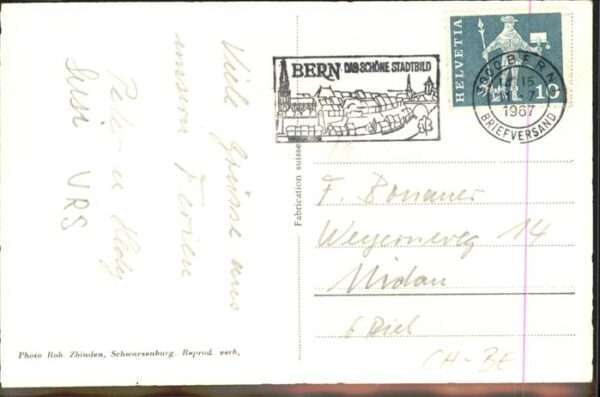 Viele Grüsse aus
unseren Ferien
Peter u Hedy
Susi URS
BERN DAS SCHÖNE STADTBILD
HELVETIA
10
3000 BERN
15
7
1967
BRIEFVERSAND
Fabrication suisse
F. Bonauer
Weyernweg 14
Nidau
b Biel
CH-BE
Photo Rob. Zbinden, Schwarzenburg. Reprod. verb.